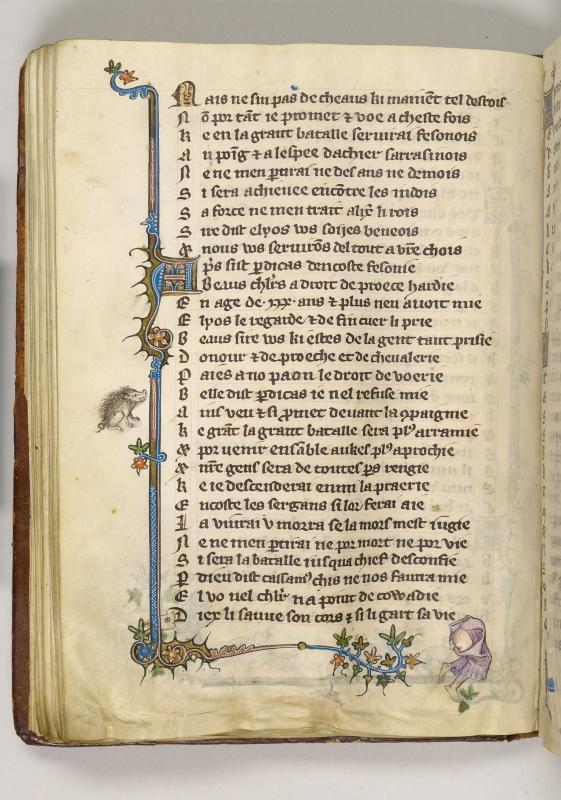 Mais ne sui pas de cheaus ki mainēt tel desrois
Nō por tāt ie promet ⁊ voe a cheste fois
Ke en la grant bataille seruirai fesonois
An poīg ⁊ a lespee dachier sarrasinois
Ne ne men ptirai ne des ans ne demois
Si sera achieuee encōtre les indois
Sa force ne men trait alix̄ li rois
Sire dist elyos vos soijes beneois
⁊ nous vos seruirōs del tout a vre chois
Aps sist pdicas dencoste fesonie
Beuus chlrs a droit de proece hardie
En age de .xxx. ans ⁊ plus neu auoit mie
Elyos le regarde ⁊ de fin cuer li prie
Beaus sire vos ki estes de la gent tant prisie
Donour ⁊ de proeche et de cheualerie
Paies a no paon le droit de voerie
Belle dist pdicas ie nel refuse mie
Ains veu ⁊ si pmet deuant la ꝯpaignie
Ke grāt la grant bataille sera plꝰ arramie
⁊ por uenir ensāble aukes plꝰ aprochie
⁊ nre gens sera de toutes ps rengie
Ke ie descenderai enmi la praerie
Encoste les sergans si lor ferai aie
La viurai v morra se la mors mest iugie
Ne ne men ptirai ne por mort ne por vie
Si sera la bataille iusqua chief desconfie
P dieu dist cassamꝰ chis ne nos faurra mie
El vo nel chlr na point de cowardie
Diex li sauue son cors ⁊ si li gart sa vie